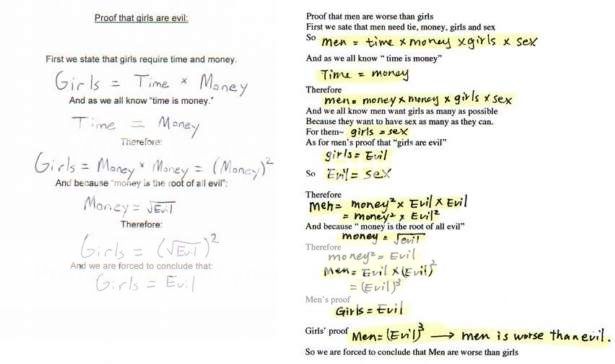 Proof that girls are evil:
First we state that girls require time and money.
Girls = Time × Money
And as we all know "time is money."
Time = Money
Therefore:
Girls = Money × Money = (Money)²
And because "money is the root of all evil":
Money = √Evil
Therefore:
Girls = (√Evil)²
And we are forced to conclude that:
Girls = Evil
Proof that men are worse than girls
First we sate that men need tie, money, girls and sex
So men = time × money × girls × sex
And as we all know " time is money"
Time = money
Therefore
men = money × money × girls × sex
And we all know men want girls as many as possible
Because they want to have sex as many as they can.
For them– girls = sex
As for men's proof that "girls are evil"
girls = Evil
So Evil = sex
Therefore
Men = money² × Evil × Evil
= money² × Evil²
And because " money is the root of all evil"
money = √evil
Therefore
money² = Evil
Men = Evil × (Evil)²
= (Evil)³
Men's proof
Girls = Evil
Girls' proof Men = (Evil)³ → men is worse than evil.
So we are forced to conclude that Men are worse than girls